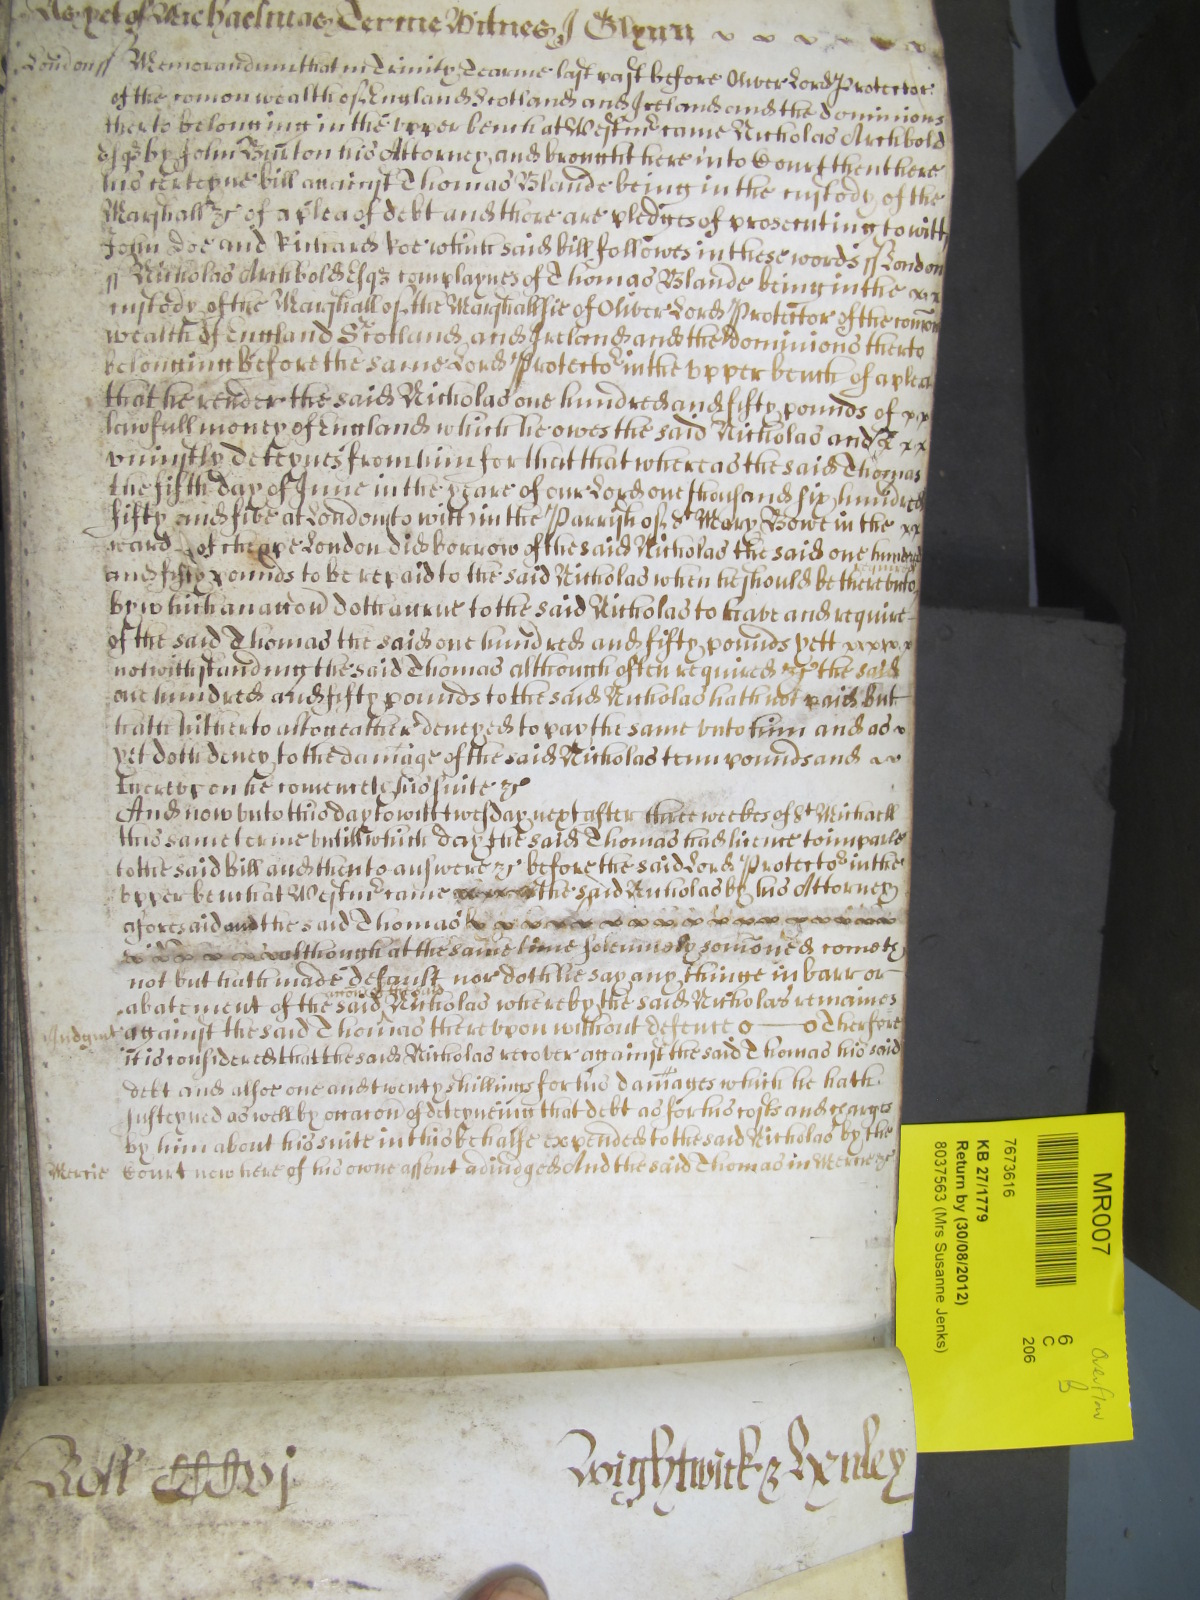 As yet of Michaelmas Terme Witnes J Glynn
Londonss Memorandum that in Trinity Tearme last past before Oliver Lord Protector
of the comonwealth of England Scotland and Ireland and the dominions
therto belonging in the upper bench at Westmr came Nicholas Archbold
Esqr by John Burton his Attorney and brought here into Court then there
his certeyne bill against Thomas Blande being in the custody of the
Marshall &c of a plea of debt and there are pledges of prosecuting to witt
John Doe and Richard Roe which said bill followes in these words ss London
ss Nicholas Archbold Esqr complaynes of Thomas Blande being in the
custody of the Marshall of the Marshallsie of Oliver Lord Protector of the comon
wealth of England Scotland and Ireland and the dominions therto
belonging before the same Lord Protector in the upper bench of a plea
that he render the said Nicholas one hundred and fifty pounds of
lawfull money of England which he owes the said Nicholas and
uniustly deteynes from him for that that whereas the said Thomas
the fifth day of June in the yeare of our Lord one thousand six hundred
fifty and five at London to witt in the Parrish of St Mary Bowe in the
ward of cheape London did borrow of the said Nicholas the said one hundred
and fifty pounds to be repaid to the said Nicholas when he should be therevnto
by which an accon doth accrue to the said Nicholas to have and require
of the said Thomas the said one hundred and fifty pounds yett
notwithstanding the said Thomas although often required &c the said
one hundred and fifty pounds to the said Nicholas hath not paid but
hath hitherto altogeather denyed to pay the same unto him and as
yet doth deney to the damage of the said Nicholas tenn pounds and
thereupon he comenceth his suite &c
And now unto this day to witt twesday next after three weekes of St Michaell
this same terme untill which day the said Thomas had licence to imparle
to the said bill and then to answere &c before the said Lord Protector in the
upper bench at Westmr came the said Nicholas by his Attorney
aforesaid and the said Thomas
although at the same time solemnely somoned cometh
not but hath made default nor doth he say any thinge in barr or
accon of the said
abatement of the said Nicholas whereby the said Nicholas remaines
Judgmt against the said Thomas thereupon without defence o — o Therfore
it is considered that the said Nicholas recover against the said Thomas his said
debt and alsoe one and twenty shillings for his damages which he hath
susteyned as well by occacon of deteyneing that debt as for his costs and charges
by him about his suite in this behalfe expended to the said Nicholas by the
Mercie Court now here of his owne assent adiudged And the said Thomas in Mercie &c
Roll CCCCvj
Wightwick & Lynley
MR007
6
C
206
Overflow
B
7673616
KB 27/1779
Return by (30/08/2012)
8037563 (Mrs Susanne Jenks)